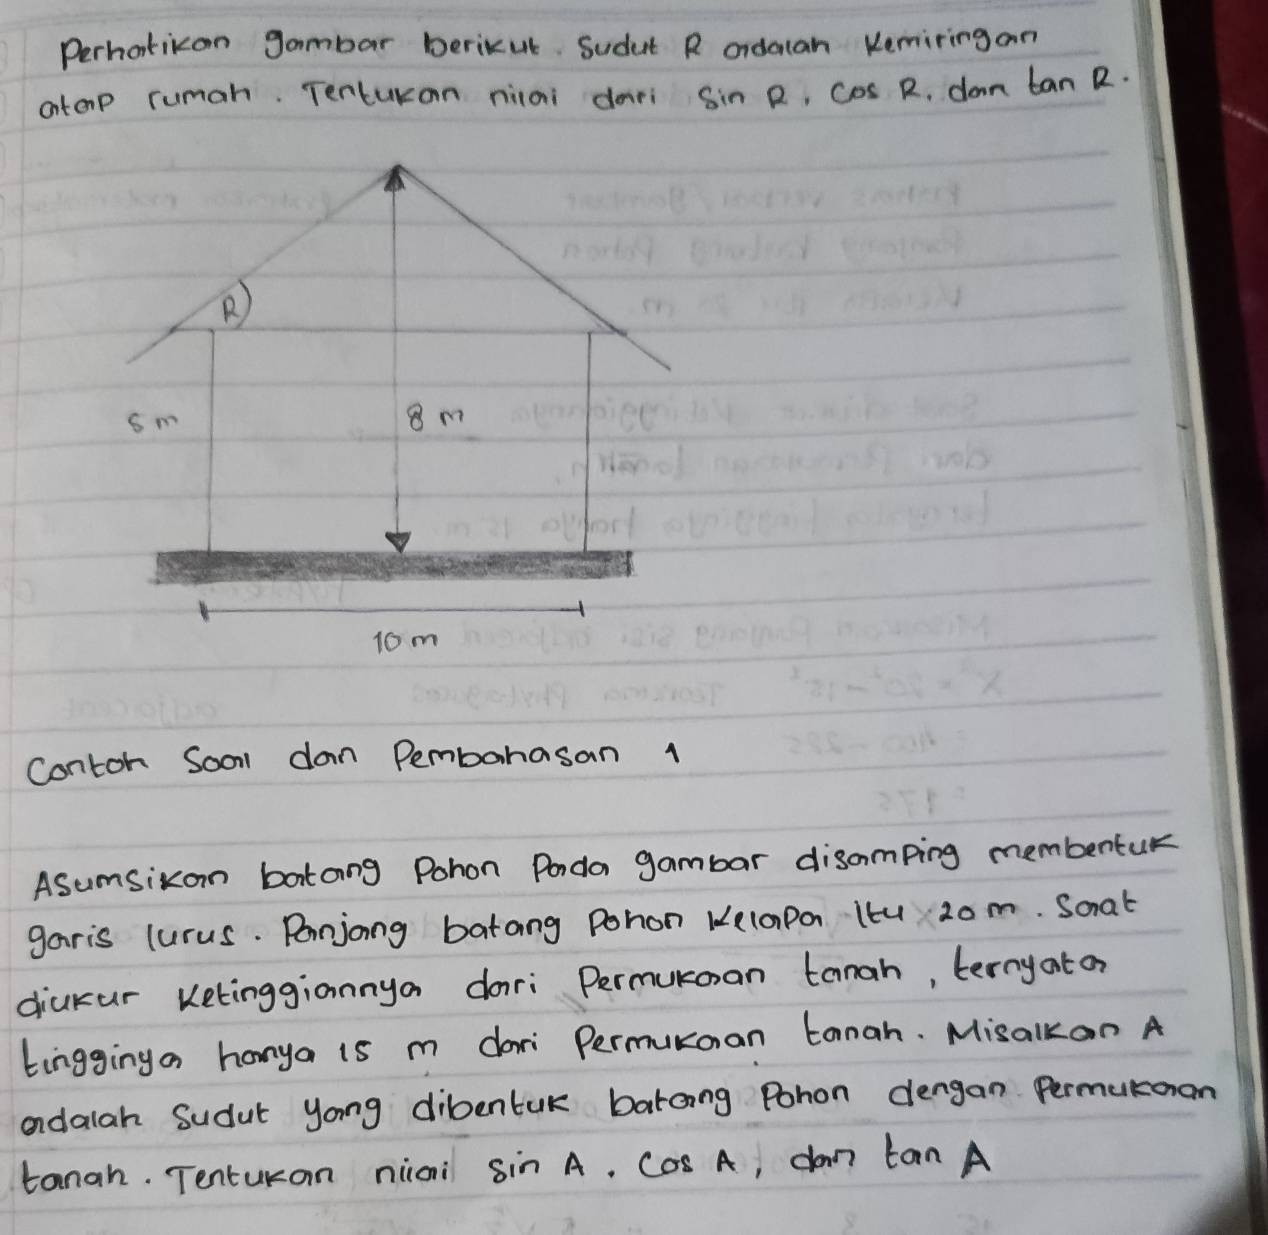 Perhatikan gambar berikut. Sudut R adalah kemiringan
atap rumah. Tentukan nilai dari Sin R, Cos R, dan tan R.
R
5 m
8 m
10 m
Contoh Soal dan Pembahasan 1
Asumsikan batang Pohon Pada gambar disamping membentuk
garis lurus. Panjang batang Pohon Kelapa itu 20 m. Saat
diukur ketinggiannya dari Permukaan tanah, ternyata
tingginya hanya 15 m dari Permukaan tanah. Misalkan A
adalah Sudut yang dibentuk batang Pohon dengan Permukaan
tanah. Tentukan nilai Sin A, Cos A, dan tan A